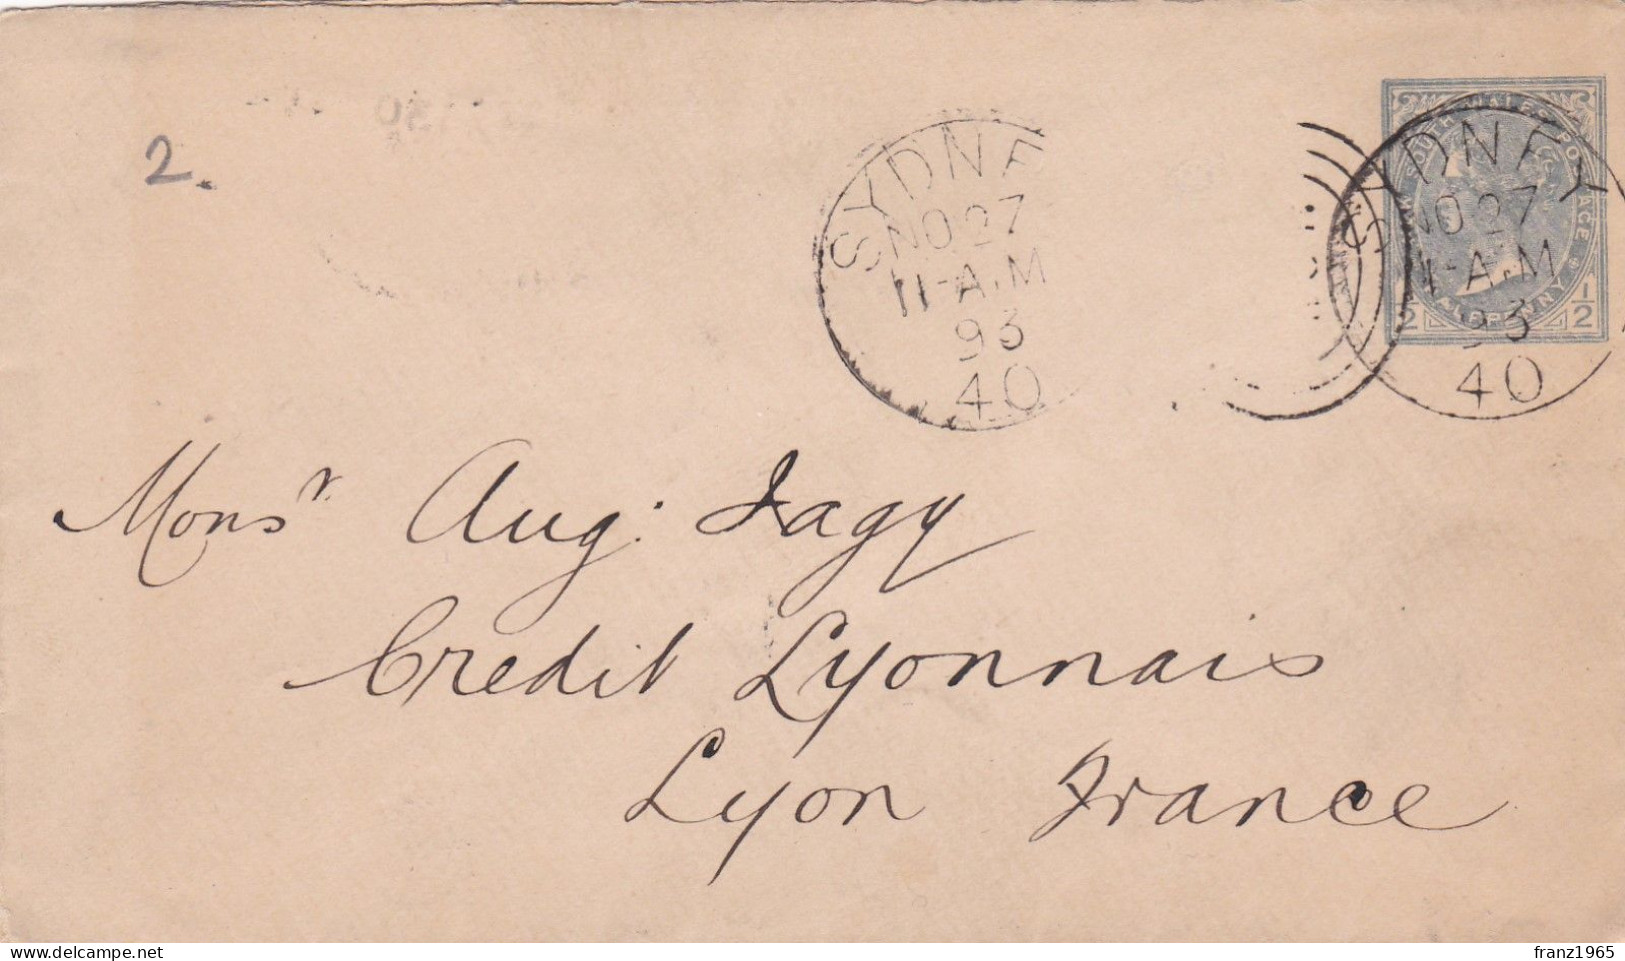 2.
SYDNEY
NO 27
11-A.M
93
40
SOUTH WALES POSTAGE
HALFPENNY
1/2 1/2
SYDNEY
NO 27
11-A.M
93
40
Monsr Aug: Jagy
Credit Lyonnais
Lyon France
delcampe.net
franz1965